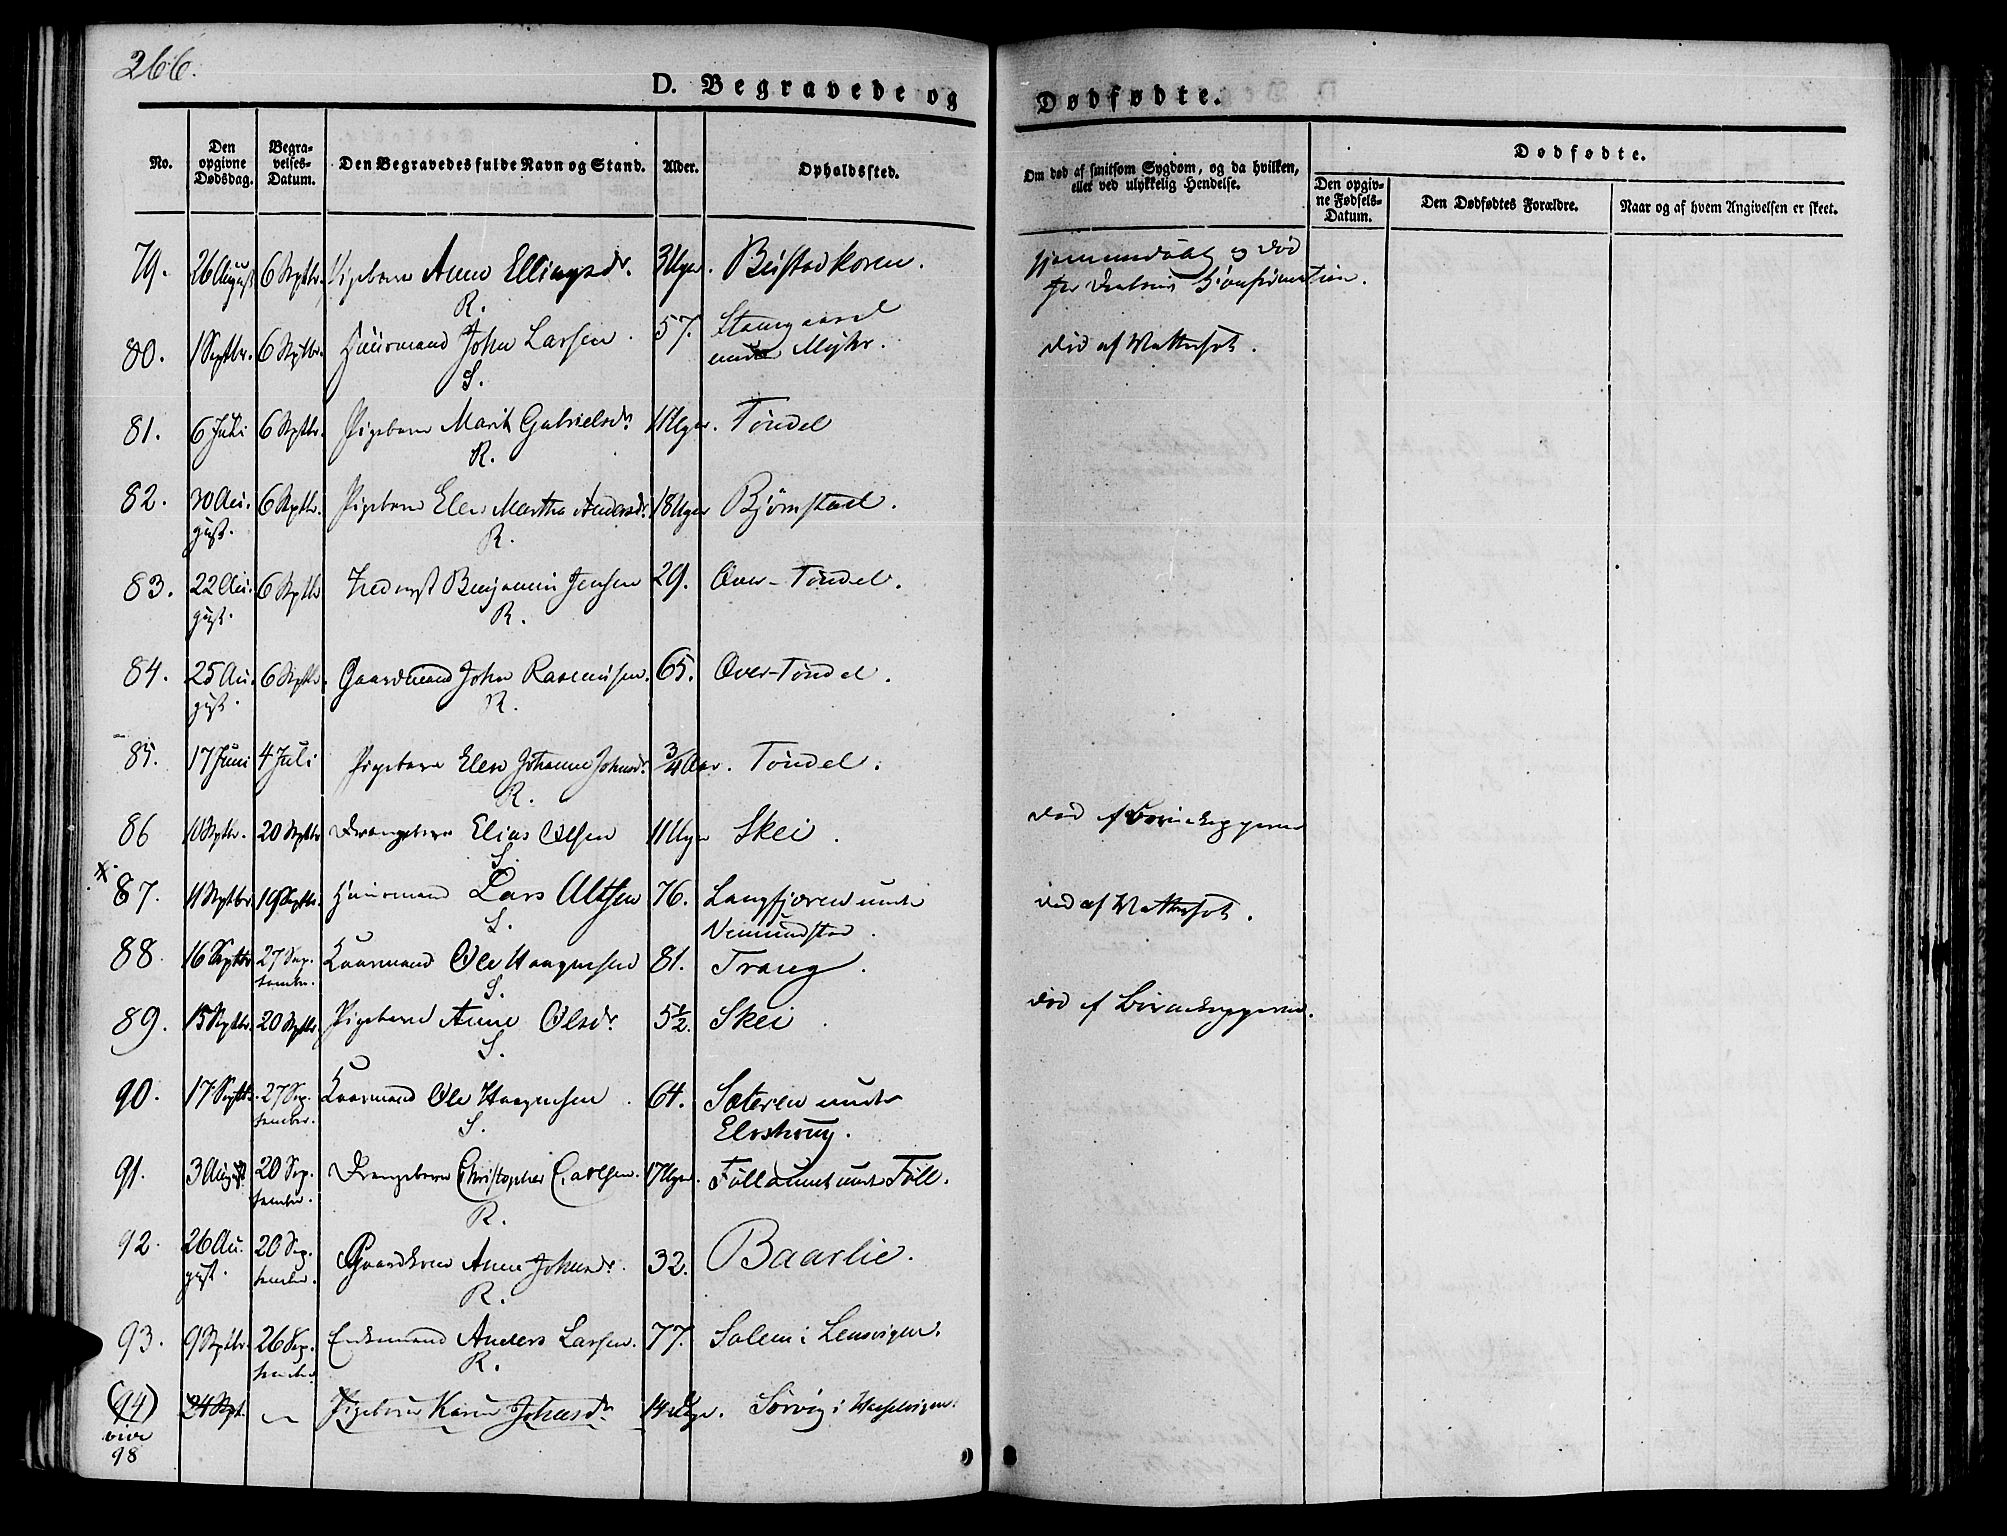 266.
D. Begravede og Dødfødte.
No.
Den opgivne Dødsdag.
Begravelses-Datum.
Den Begravedes fulde Navn og Stand.
Alder.
Opholdssted.
Om død af smitsom Sygdom, og da hvilken,
eller ved ulykkelig Hendelse.
Dødfødte.
Den opgivne Fødsels-Datum.
Den Dødfødtes Forældre.
Naar og af hvem Angivelsen er skeet.
79. 26 August 6 Septbr. Pigebarn Anne Ellingsdr. 3 Uger. Beistadkoren. hjemmedøbt og død
R. før Daabens Confirmation.
80. 1 Septbr. 6 Septbr. Huusmand John Larsen. 57. Stamgaard
S. under Myhr. død af Vattersot.
81. 6 Juli 6 Septbr. Pigebarn Marit Gabrielsdr. 11 Uger. Tøndel
R.
82. 30 Au- 6 Septbr. Pigebarn Elen Martha Andersdr. 18 Uger Bjørnstad.
gust. R.
83. 22 Au- 6 Septbr Benjamin Jensen 29. Over-Tøndel.
gust. R.
84. 25 Au- 6 Septbr. Gaardmand John Rasmusen. 65. Over-Tøndel.
gust. R.
85. 17 Juni 4 Juli Pigebarn Elen Johanna Johnsdr. 3/4 Aar. Tøndel.
R.
86 10 Septbr. 20 Septbr Drengebarn Elias Olsen 11 Uger Skei. død af Børnekopperne
S.
87. 11 Septbr 19 Septbr. Huusmand Lars Olsen 76. Langfjæren under
S. Vemundstad. død af Vattersot.
88. 16 Septbr 27 Sep- Kaarmand Ole Haagensen 81. Trang.
tember. S.
89. 15 Septbr. 20 Septbr. Pigebarn Anne Olsdr. 5 1/2. Skei. død af Børnekopperne.
S.
90. 17 Septbr. 27 Sep- Kaarmand Ole Haagensen. 64. Sæteren under
tember. S. Elvshoug.
91. 3 August 20 Sep- Drengebarn Christopher Carlsen. 17 Uger. under Føll.
tember. R.
92. 26 Au- 20 Sep- Gaardkone Anne Johnsdr. 32. Baarlie.
gust. tember. R.
93. 9 Septbr. 26 Sep- Enkemand Anders Larsen. 77. Solem i Lensvigen.
tember R.
(94) 24 Sept. — Pigebarn Karen Johnsdr. 14 Uger. Sørvig i
98